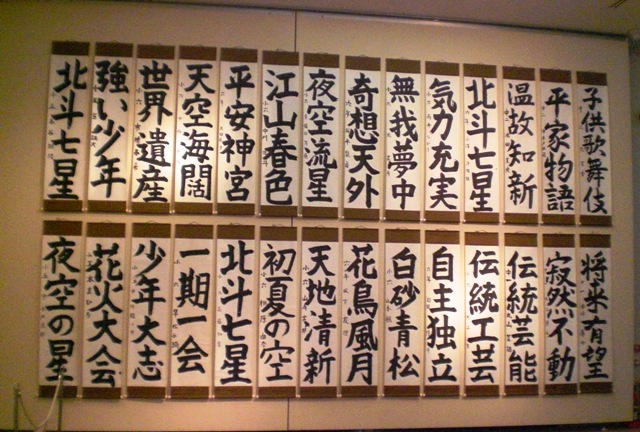 子供歌舞伎
平家物語
温故知新
北斗七星
気力充実
無我夢中
奇想天外
夜空流星
江山春色
平安神宮
天空海闊
世界遺産
強い少年
北斗七星
将来有望
寂然不動
伝統芸能
伝統工芸
自主独立
白砂青松
花鳥風月
天地清新
初夏の空
北斗七星
一期一会
少年大志
花火大会
夜空の星